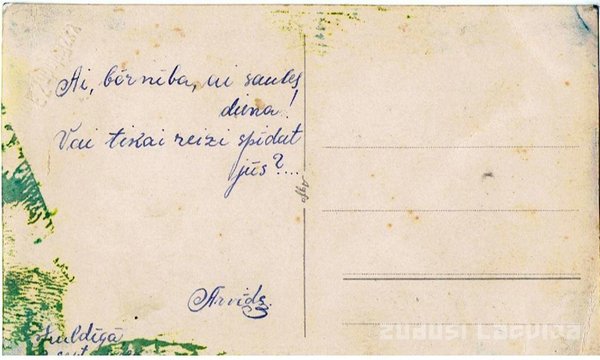 Ai, bērnība, ai saules
diena!
Vai tikai reizi spīdat
jūs?...
Arvīds.
Kuldīgā
sept
Agfa
ZUDUSI LATVIJA